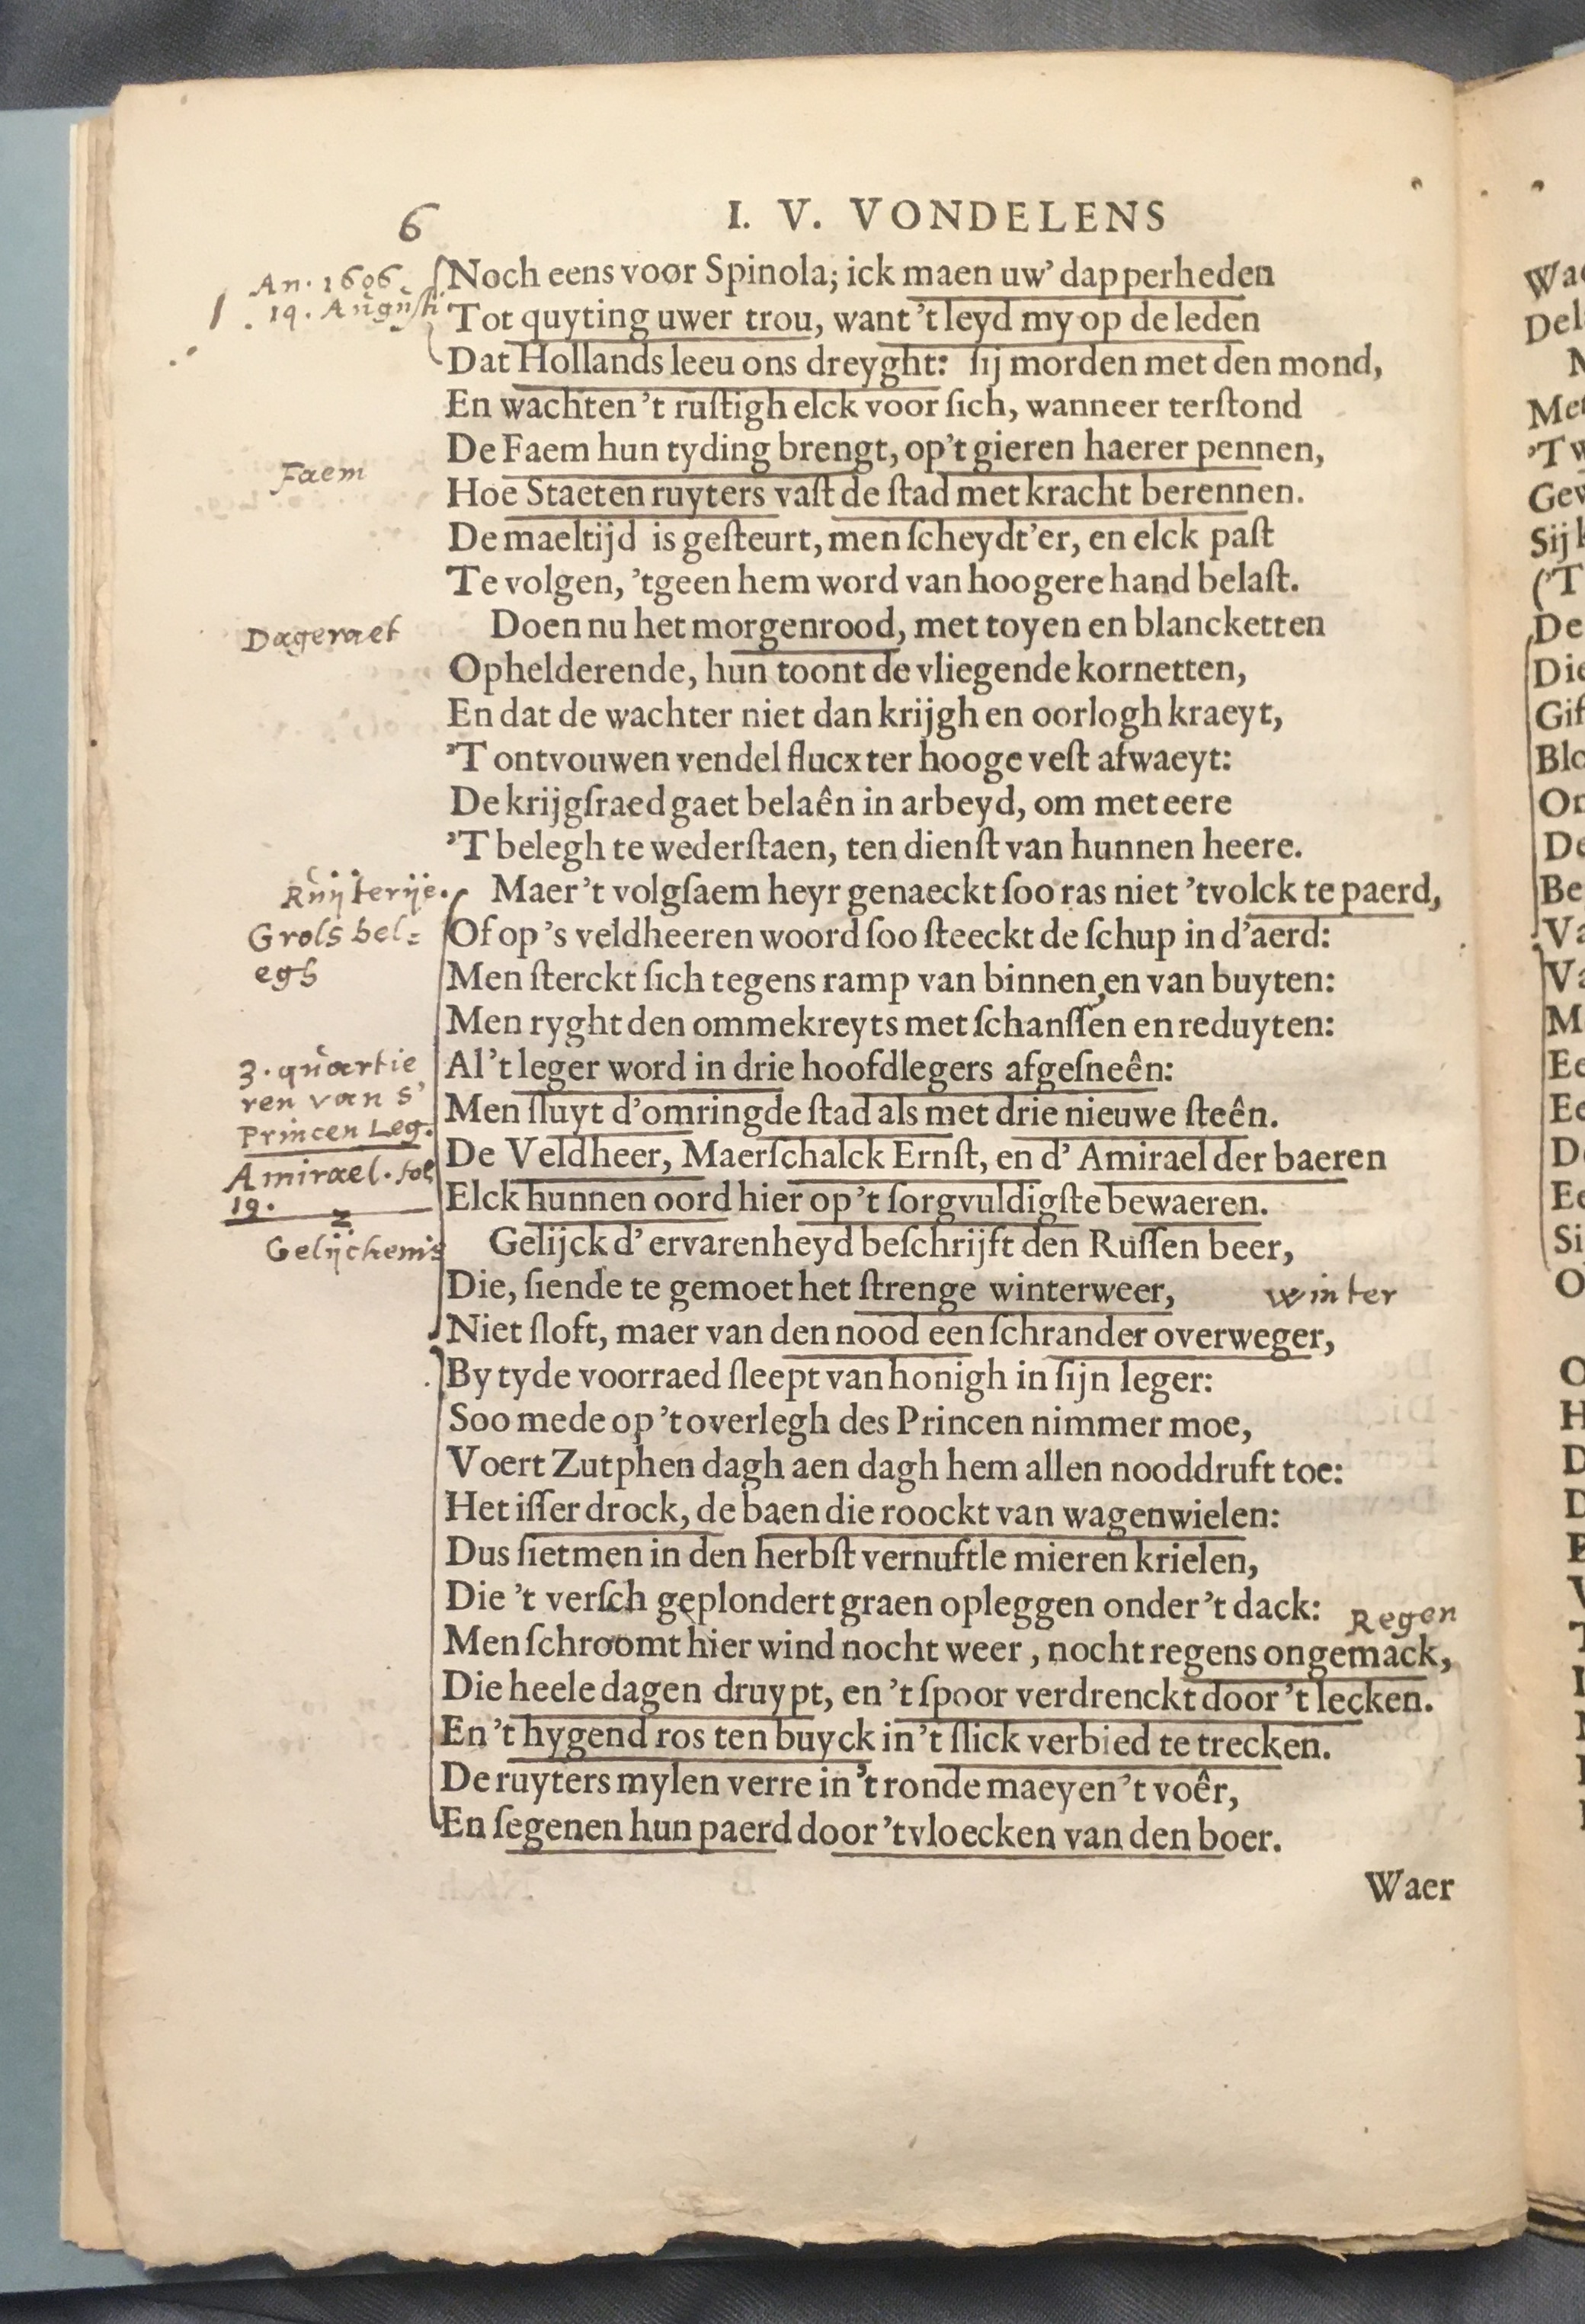 6
I. V. VONDELENS
An. 1606.
19. Augusti
Noch eens voor Spinola; ick maen uw' dapperheden
Tot quyting uwer trou, want 't leyd my op de leden
Dat Hollands leeu ons dreyght: sij morden met den mond,
En wachten 't rustigh elck voor sich, wanneer terstond
De Faem hun tyding brengt, op't gieren haerer pennen,
Faem
Hoe Staeten ruyters vast de stad met kracht berennen.
De maeltijd is gesteurt, men scheydt'er, en elck past
Te volgen, 'tgeen hem word van hoogere hand belast.
Dageraet
Doen nu het morgenrood, met toyen en blancketten
Ophelderende, hun toont de vliegende kornetten,
En dat de wachter niet dan krijgh en oorlogh kraeyt,
'T ontvouwen vendel flucx ter hooge vest afwaeyt:
De krijgsraed gaet belaên in arbeyd, om met eere
'T belegh te wederstaen, ten dienst van hunnen heere.
Ruyterije.
Maer 't volgsaem heyr genaeckt soo ras niet 'tvolck te paerd,
Grols bel=
Of op 's veldheeren woord soo steeckt de schup in d'aerd:
egh
Men sterckt sich tegens ramp van binnen, en van buyten:
Men ryght den ommekreyts met schanssen en reduyten:
3. quartie
Al 't leger word in drie hoofdlegers afgesneên:
ren van s'
Men sluyt d'omringde stad als met drie nieuwe steên.
Princen Leg.
De Veldheer, Maerschalck Ernst, en d' Amirael der baeren
Amirael.
19.
Elck hunnen oord hier op 't sorgvuldigste bewaeren.
Gelijckenis
Gelijck d' ervarenheyd beschrijft den Russen beer,
Die, siende te gemoet het strenge winterweer,
winter
Niet sloft, maer van den nood een schrander overweger,
By tyde voorraed sleept van honigh in sijn leger:
Soo mede op 't overlegh des Princen nimmer moe,
Voert Zutphen dagh aen dagh hem allen nooddruft toe:
Het isser drock, de baen die roockt van wagenwielen:
Dus sietmen in den herbst vernuftle mieren krielen,
Die 't versch geplondert graen opleggen onder 't dack:
Regen
Men schroomt hier wind nocht weer, nocht regens ongemack,
Die heele dagen druypt, en 't spoor verdrenckt door 't lecken.
En 't hygend ros ten buyck in 't slick verbied te trecken.
De ruyters mylen verre in 't ronde maeyen 't voêr,
En segenen hun paerd door 'tvloecken van den boer.
Waer